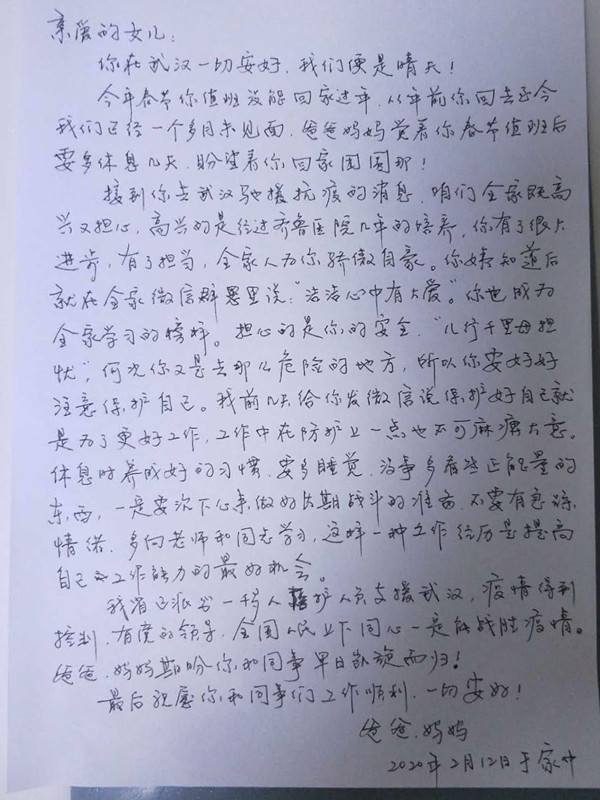 亲爱的女儿：
你在武汉一切安好，我们便是晴天！
今年春节你值班没能回家过年，从年前你回去至今
我们已经一个多月未见面，爸爸妈妈觉着你春节值班后
要多休息几天，盼望着你回家团圆那！
接到你去武汉驰援抗疫的消息，咱们全家既高
兴又担心，高兴的是经过齐鲁医院几年的培养，你有了很大
进步，有了担当，全家人为你骄傲自豪。你姨知道后
就在全家微信群里说："洁洁心中有大爱"。你也成为
全家学习的榜样。担心的是你的安全，"儿行千里母担
忧"，何况你又是去那么危险的地方，所以你要好好
注意保护自己。我前几天给你发微信说保护好自己就
是为了更好工作，工作中在防护上一点也不可麻痹大意。
休息时养成好的习惯，要多睡觉，没事多看些正能量的
东西，一是要沉下心来做好长期战斗的准备，不要有急躁
情绪，多向老师和同志学习，这样一种工作经历是提高
自己工作能力的最好机会。
我省已派出一千多人医护人员支援武汉，疫情得到
控制，有党的领导，全国人民上下同心一定能战胜疫情。
爸爸、妈妈期盼你和同事早日凯旋而归！
最后祝愿你和同事们工作顺利，一切安好！
爸爸、妈妈
2020年2月12日于家中